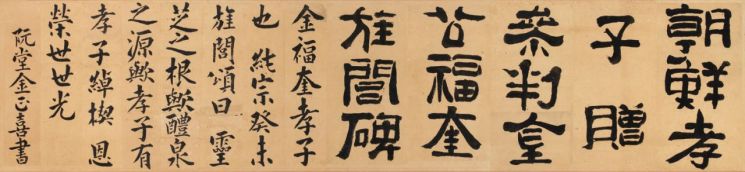 朝鮮孝
子贈
參判金
公福奎
旌閭碑
金福奎孝子
也純宗癸未
旌閭頌曰靈
芝之根歟醴泉
之源歟孝子有
孝子綽楔恩
榮世世光
阮堂金正喜書